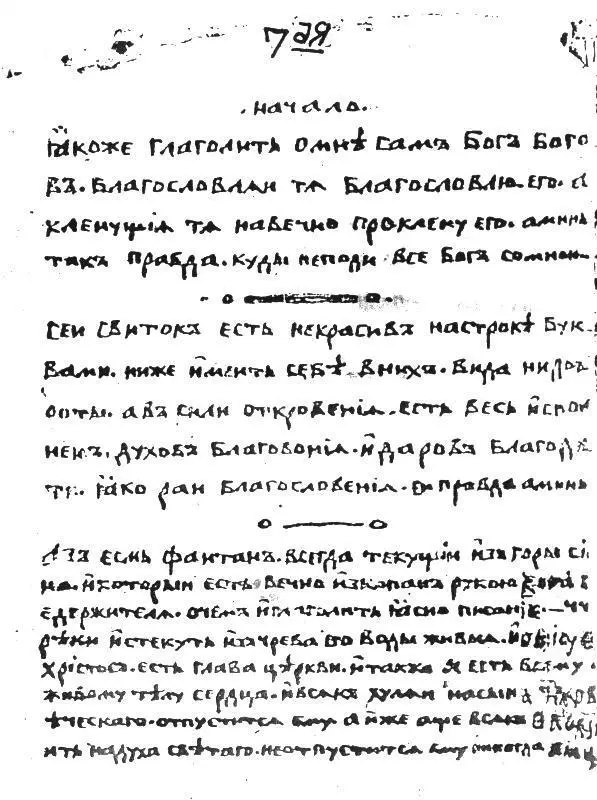 7 ая
.начало.
ꙗкоже глаголить омнѣ самъ богъ бого
въ. благословлаи тѧ благословлю его. а
кленущїа тѧ навечно проклену его. аминь
такъ правда. куды неподи все богъ сомнои.
сеи свитокъ есть некрасивъ настрокѣ бук
вами. ниже имеить себѣ внихъ. вида нидоб
роты. авъ сили откровенїа. есть весь испол
ненъ. духовъ благовонїа. и даровъ благода
ти. ꙗко раи благословенїа. правда аминь
Азъ есмь фантанъ. всегда текущїи изъ горы сїо
на. икоторыи есть вечно изкопанъ рукою
едержителя. очемъ иглаголить ꙗсно писанїе.
рѣки истекуть изъчрева его воды живыа. ииїсус
хрїстосъ. есть глава цѣркви. итакжа я есть всѣму.
живому тѣлу сердца. ивсакъ хулаи насына
ѣческаго. отпустится ему а иже аще всакъ
ить надуха свѣтаго. неотпустится ему никогда